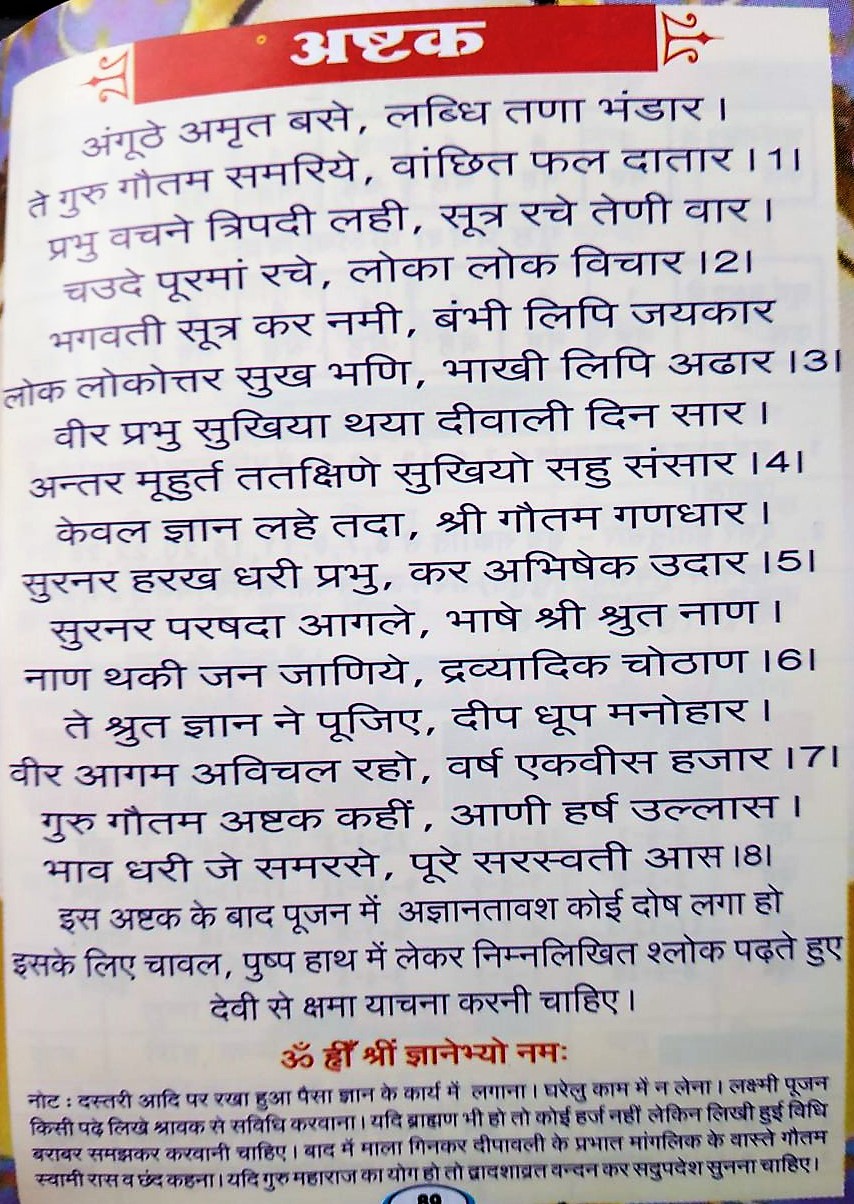 अष्टक
अंगूठे अमृत बसे, लब्धि तणा भंडार ।
ते गुरु गौतम समरिये, वांछित फल दातार ।1।
प्रभु वचने त्रिपदी लही, सूत्र रचे तेणी वार ।
चउदे पूरमां रचे, लोका लोक विचार ।2।
भगवती सूत्र कर नमी, बंभी लिपि जयकार
लोक लोकोत्तर सुख भणि, भाखी लिपि अढार ।3।
वीर प्रभु सुखिया थया दीवाली दिन सार ।
अन्तर मूहुर्त ततक्षिणे सुखियो सहु संसार ।4।
केवल ज्ञान लहे तदा, श्री गौतम गणधार ।
सुरनर हरख धरी प्रभु, कर अभिषेक उदार ।5।
सुरनर परषदा आगले, भाषे श्री श्रुत नाण ।
नाण थकी जन जाणिये, द्रव्यादिक चोठाण ।6।
ते श्रुत ज्ञान ने पूजिए, दीप धूप मनोहार ।
वीर आगम अविचल रहो, वर्ष एकवीस हजार ।7।
गुरु गौतम अष्टक कहीं, आणी हर्ष उल्लास ।
भाव धरी जे समरसे, पूरे सरस्वती आस ।8।
इस अष्टक के बाद पूजन में अज्ञानतावश कोई दोष लगा हो
इसके लिए चावल, पुष्प हाथ में लेकर निम्नलिखित श्लोक पढ़ते हुए
देवी से क्षमा याचना करनी चाहिए ।
ॐ ह्रीँ श्रीं ज्ञानेभ्यो नमः
नोट : दस्तरी आदि पर रखा हुआ पैसा ज्ञान के कार्य में लगाना । घरेलु काम में न लेना । लक्ष्मी पूजन
किसी पढ़े लिखे श्रावक से सविधि करवाना । यदि ब्राह्मण भी हो तो कोई हर्ज नहीं लेकिन लिखी हुई विधि
बराबर समझकर करवानी चाहिए । बाद में माला गिनकर दीपावली के प्रभात मांगलिक के वास्ते गौतम
स्वामी रास व छंद कहना । यदि गुरु महाराज का योग हो तो द्वादशाव्रत वन्दन कर सदुपदेश सुनना चाहिए ।
89